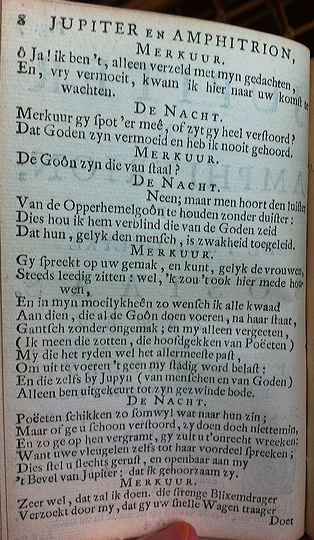 8 JUPITER EN AMPHITRION,
MERKUUR.
ô Ja! ik ben 't, alleen verzeld met myn gedachten,
En, vry vermoeit, kwam ik hier naar uw komst te
wachten.
DE NACHT.
Merkuur gy spot 'er meê, of zyt gy heel verstoord?
Dat Goden zyn vermoeid en heb ik nooit gehoord.
MERKUUR.
De Goôn zyn die van staal?
DE NACHT.
Neen; maar men hoort den luister
Van de Opperhemelgoôn te houden zonder duister:
Dies hou ik hem verblind die van de Goden zeid
Dat hun, gelyk den mensch, is zwakheid toegeleid.
MERKUUR.
Gy spreekt op uw gemak, en kunt, gelyk de vrouwen,
Steeds leedig zitten: wel, 'k zou 't ook hier mede hou-
wen,
En in myn moeilykheên zo wensch ik alle kwaad
Aan dien, die al de Goôn doen voeren, na haar staat,
Gantsch zonder ongemak; en my alleen vergeeten,
(Ik meen die zotten, die hoofdgekken van Poëeten)
My die het ryden wel het allermeeste past,
Om uit te voeren 't geen my stadig word belast:
En die zelfs by Jupyn (van menschen en van Goden)
Alleen ben uitgekeurt tot zyn gezwinde bode.
DE NACHT.
Poëeten schikken zo somwyl wat naar hun zin;
Maar of ge u schoon verstoord, zy doen doch niettemin,
En zo ge op hen vergramt, gy zult u t'onrecht wreeken:
Want uwe vleugelen zelfs tot haar voordeel spreeken;
Dies stel u slechts gerust, en openbaar aan my
't Bevel van Jupiter: dat ik gehoorzaam zy.
MERKUUR.
Zeer wel, dat zal ik doen. die strenge Blixemdrager
Verzoekt door my, dat gy uw snelle Wagen traager
Doet